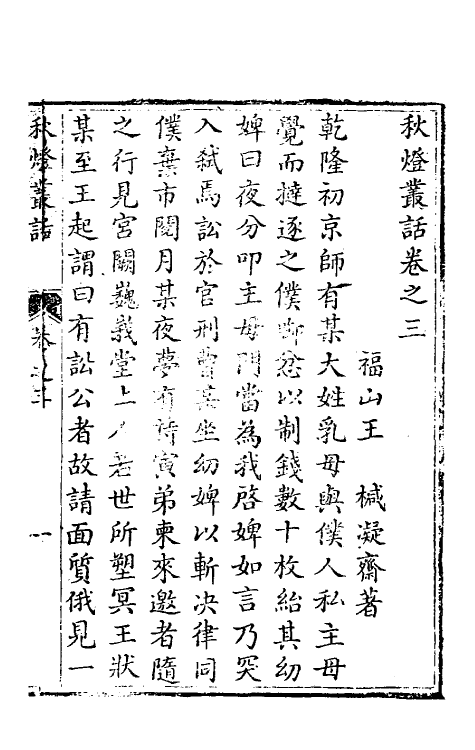 秋燈叢話卷之三
福山王 椷凝齋著
乾隆初京師有某大姓乳母與僕人私主母
覺而撻逐之僕啣忿以制錢數十枚紿其幼
婢曰夜分叩主母門當為我啓婢如言乃突
入弒焉訟於官刑曹某坐幼婢以斬决律同
僕棄市閱月某夜夢有持寅弟柬來邀者隨
之行見宮闕巍峩堂上人若世所塑冥王狀
某至王起謂曰有訟公者故請面質俄見一
秋燈叢話
卷之三
一